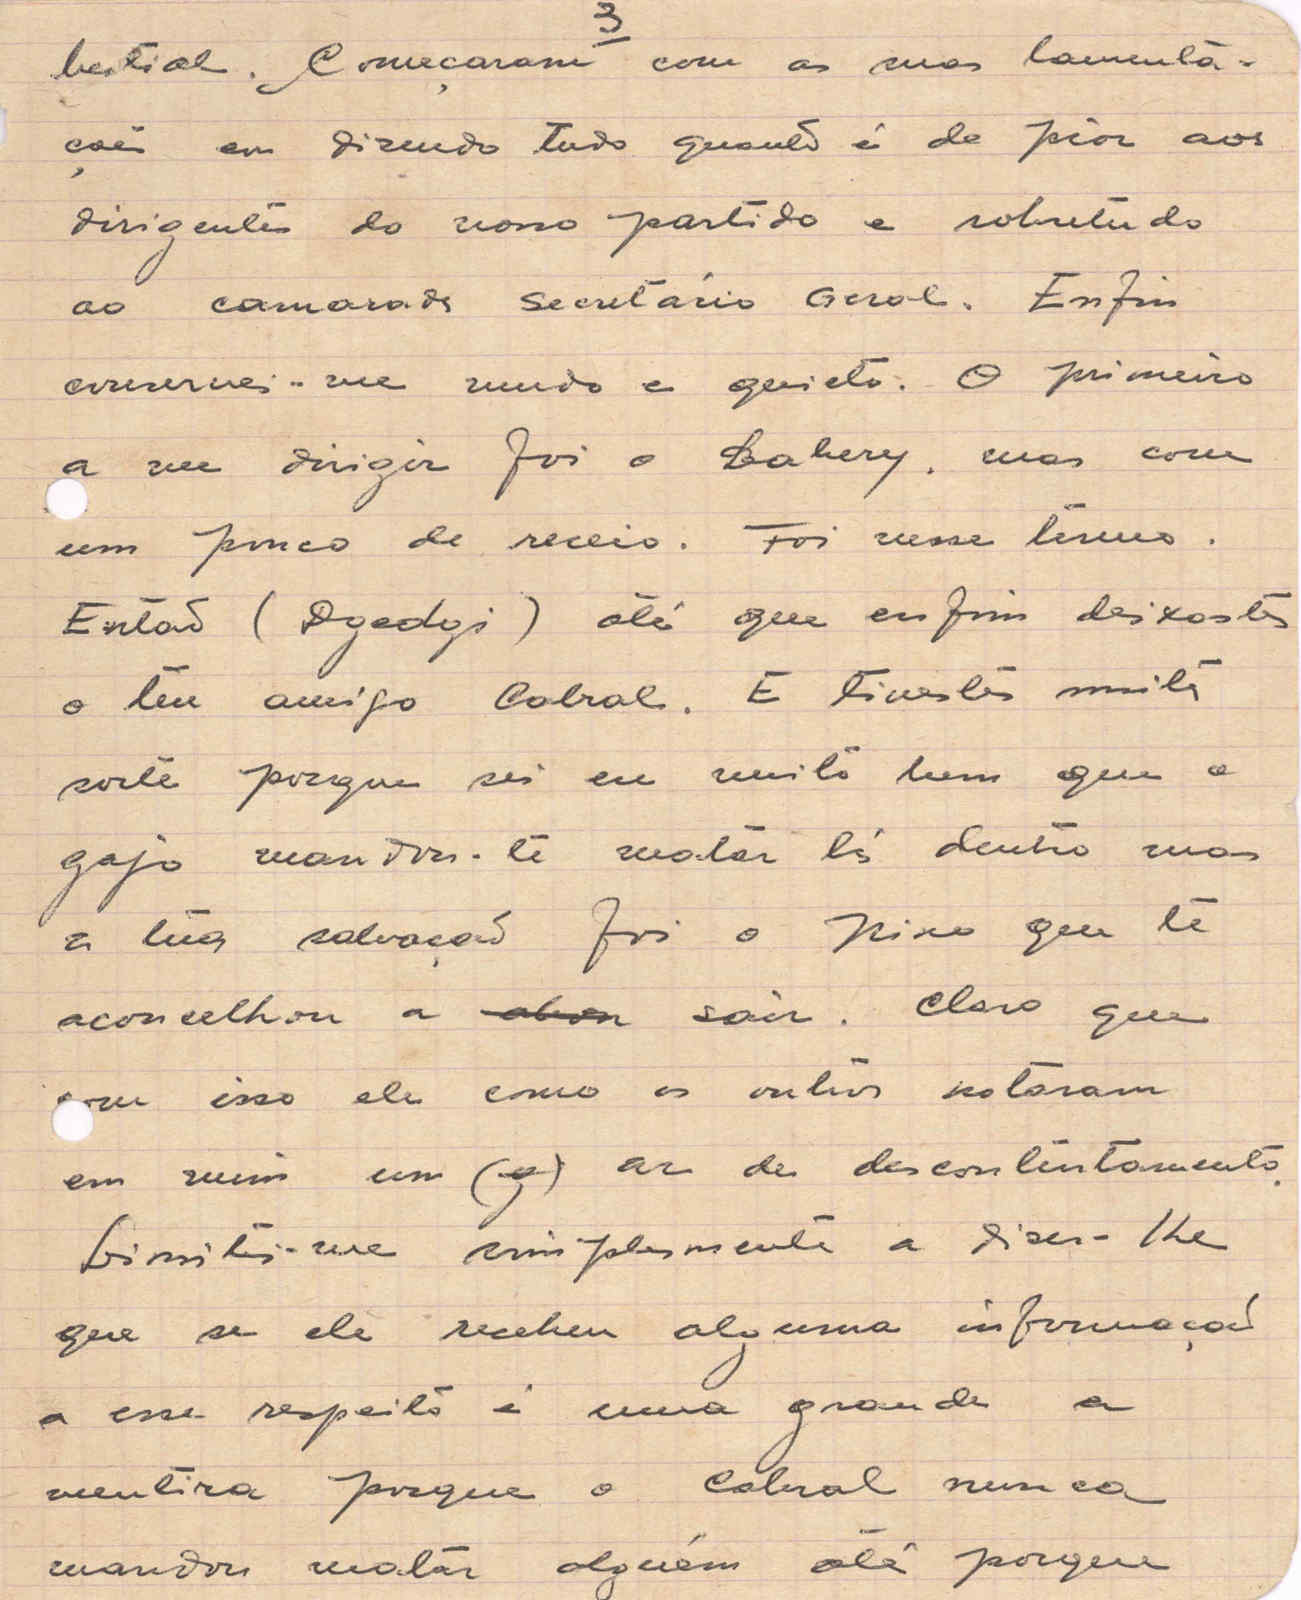 3
bestial. Começaram com as suas lamenta-
ções em dizendo tudo quanto é de pior aos
dirigentes do nosso partido e sobretudo
ao camarada Secretário Geral. Enfim
conservei-me mudo e quieto. O primeiro
a me dirigir foi o Labery, mas com
um pouco de receio. Foi nesse têrmo.
Então (Dgedgi) até que enfim deixastes
o teu amigo Cabral. E tivestes muita
sorte porque sei eu muito bem que o
gajo mandou-te matar lá dentro mas
a tua salvação foi o Nino que te
aconcelhou a sair. Claro que
com isso ele como os outros notaram
em mim um ar de descontentamento.
Limitei-me simplesmente a dizer-lhe
que se ele recebeu alguma informação
a esse respeito é uma grande a
mentira porque o Cabral nunca
mandou matar alguém até porque